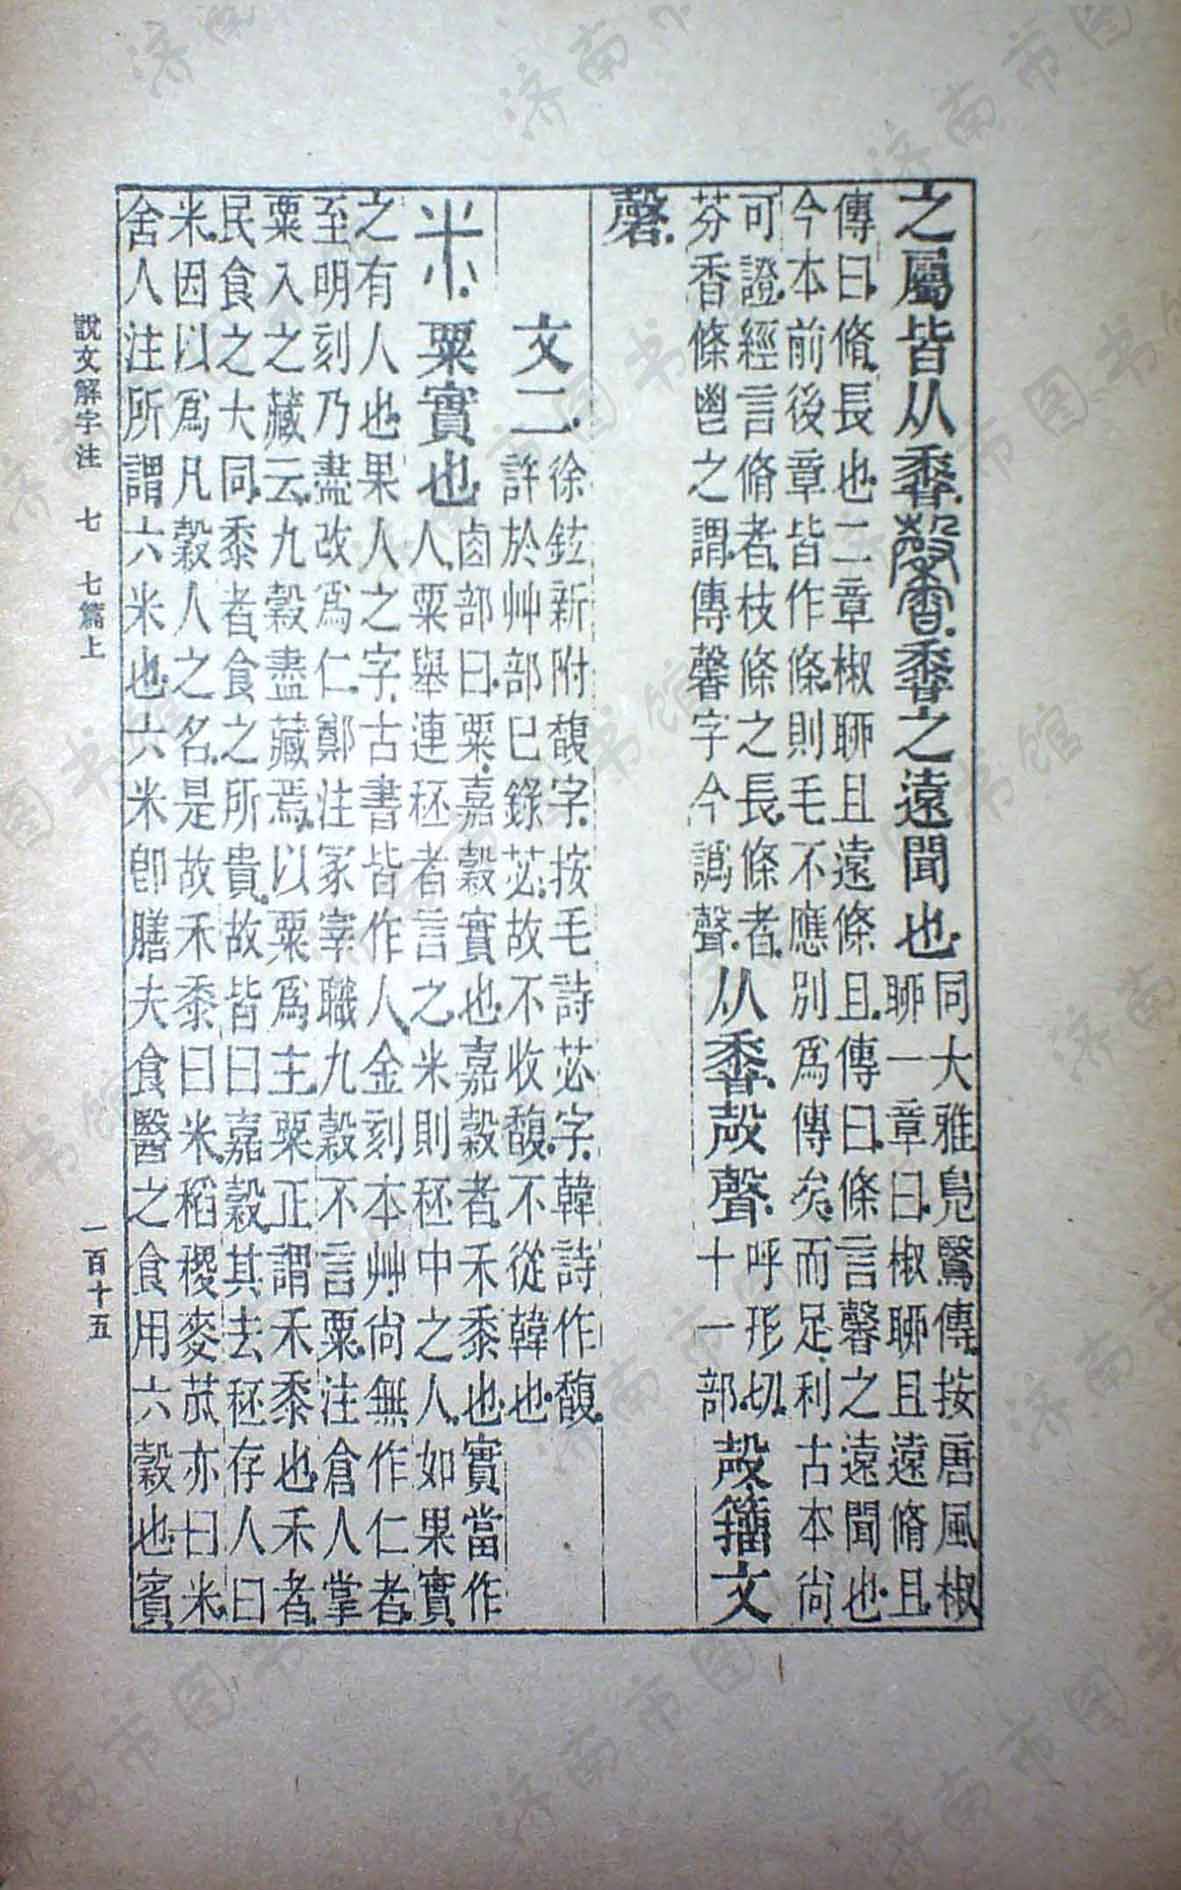 之屬皆从㿝。馨。㿝之遠聞也。同大雅鳧鷖傳。按唐風椒
聊一章曰。椒聊且遠脩且。
傳曰。脩。長也。二章椒聊且遠條且。傳曰。條言馨之遠聞也。
今本前後章皆作條。則毛不應別爲傳矣。而足利古本尚
可證。經言脩者。枝條之長。條者。
芬香條鬯之謂。傳馨字今譌聲。
从㿝殸聲。呼形切。
十一部。
殸籒文
磬。
文二。徐鉉新附馥字。按毛詩苾字。韓詩作馥。
許於艸部巳錄苾。故不收馥。不從韓也。
米。粟實也。鹵部曰。粟。嘉穀實也。嘉穀者。禾黍也。實當作
人。粟舉連秠者言之。米則秠中之人。如果實
之有人也。果人之字。古書皆作人。金刻本艸尚無作仁者。
至明刻乃盡改爲仁。鄭注冢宰職九穀不言粟。注倉人掌
粟入之藏云。九穀盡藏焉。以粟爲主。粟正謂禾黍也。禾者。
民食之大同。黍者。食之所貴。故皆曰嘉穀。其去秠存人曰
米。因以爲凡穀人之名。是故禾黍曰米。稻稷麥苽亦曰米。
舍人注所謂六米也。六米卽膳夫食醫之食用六穀也。賓
說文解字注 七 七篇上 一百十五
济南市图书馆